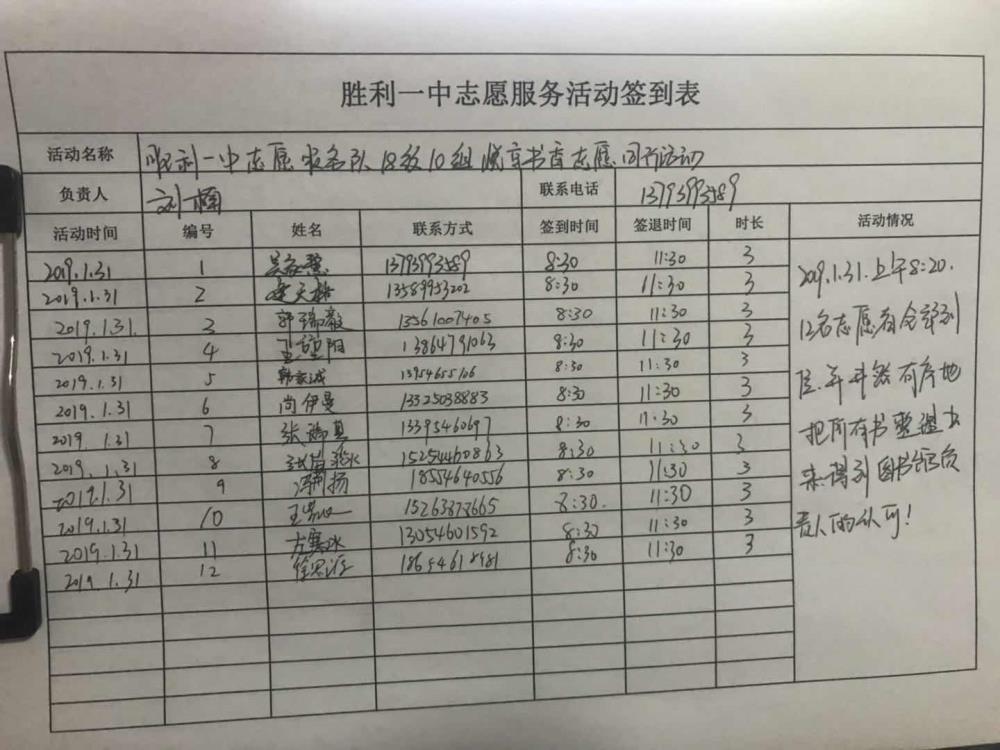 胜利一中志愿服务活动签到表
活动名称 胜利一中志愿服务队18级10组 书香志愿同行活动
负责人 刘楠 联系电话 13793993589
活动时间 编号 姓名 联系方式 签到时间 签退时间 时长 活动情况
2019.1.31 1 13793993589 8:30 11:30 3
2019.1.31 2 13589953202 8:30 11:30 3
2019.1.31. 3 郭瑞毅 13561007405 8:30 11:30 3
2019.1.31 4 阳 13864791063 8:30 11:30 3
2019.1.31 5 韩家诚 13954655106 8:30 11:30 3
2019.1.31 6 尚伊曼 13325038883 8:30 11:30 3
2019.1.31 7 张 13395460697 8:30 11:30 3
2019.1.31 8 冰 15254460863 8:30 11:30 3
2019.1.31 9 扬 18554640556 8:30 11:30 3
2019.1.31 10 王 8:30. 11:30 3
2019.1.31 11 方寒冰 13054601592 8:30 11:30 3
2019.1.31 12 徐 8:30 11:30 3
2019.1.31.上午8:20.
12名志愿者全部到
位.井井然有序地
把所有书整理出
来得到图书馆负
责人的认可!